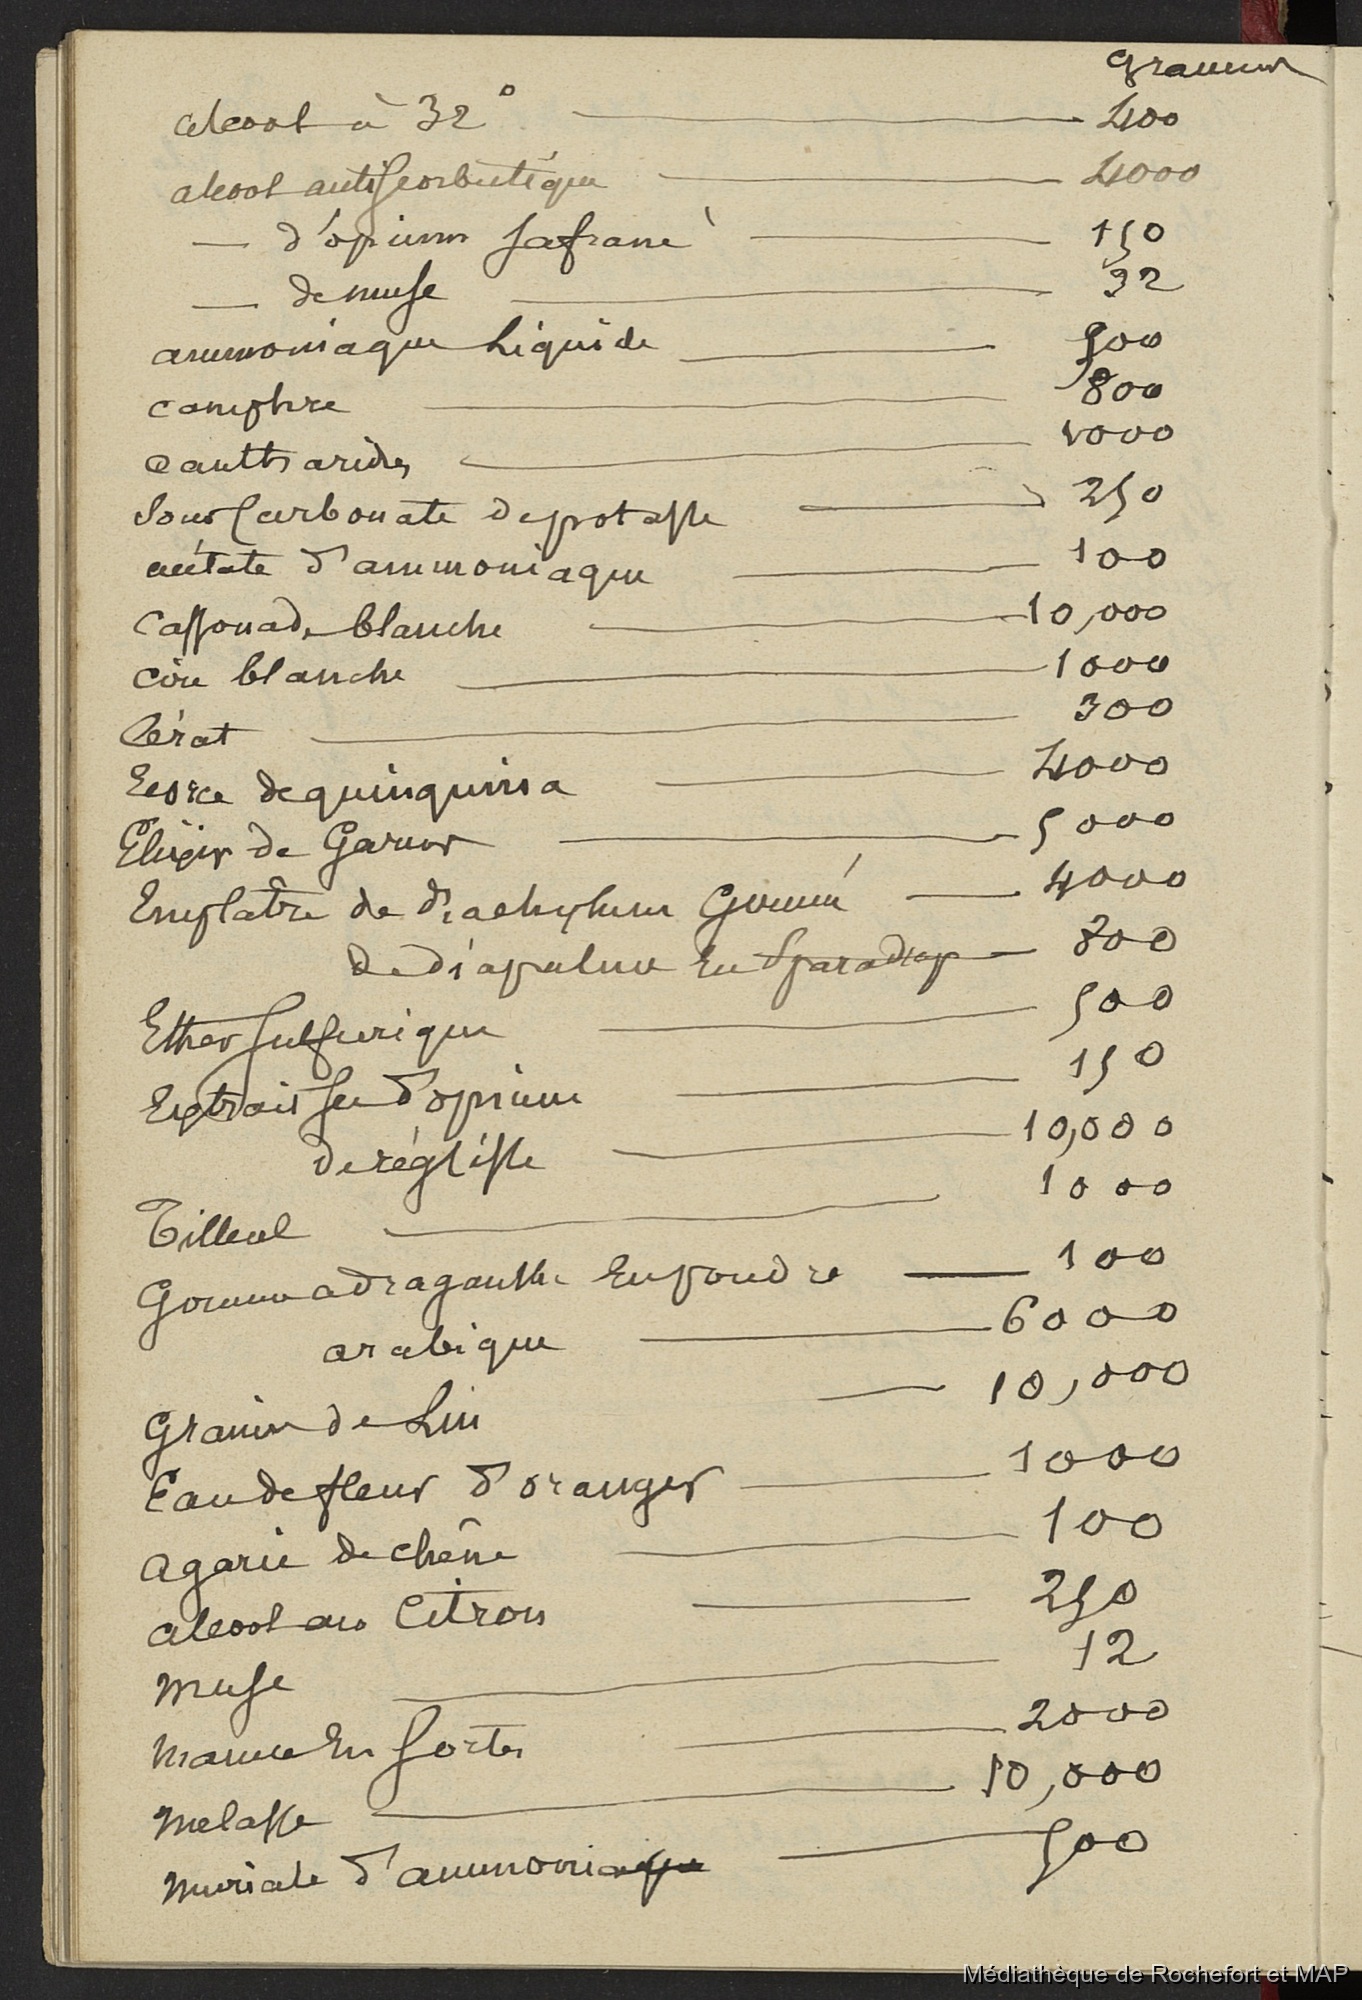 grammes
alcool à 32° — 400
alcool antiscorbutique — 4000
— d'opium safrané — 150
— de musc — 32
ammoniaque liquide — 500
camphre — 800
cantharides — 1000
Sous carbonate de potasse — 250
acétate d'ammoniaque — 100
Cassonade blanche — 10,000
Cire blanche — 1000
Cérat — 300
Ecorce de quinquina — 4000
Elixir de Garus — 5000
Emplâtre de diachylum Gommé — 4000
de diapalme En Sparadrap — 800
Ether sulfurique — 500
Extrait sec d'opium — 150
de réglisse — 10,000
Tilleul — 1000
Gomme adraganthe En poudre — 100
arabique — 6000
Graine de Lin — 10,000
Eau de fleur d'oranger — 1000
Agaric de chêne — 100
alcool au Citron — 250
Musc — 12
Manne En sortes — 2000
Melasse — 10,000
Muriate d'ammoniaque — 500
Médiathèque de Rochefort et MAP